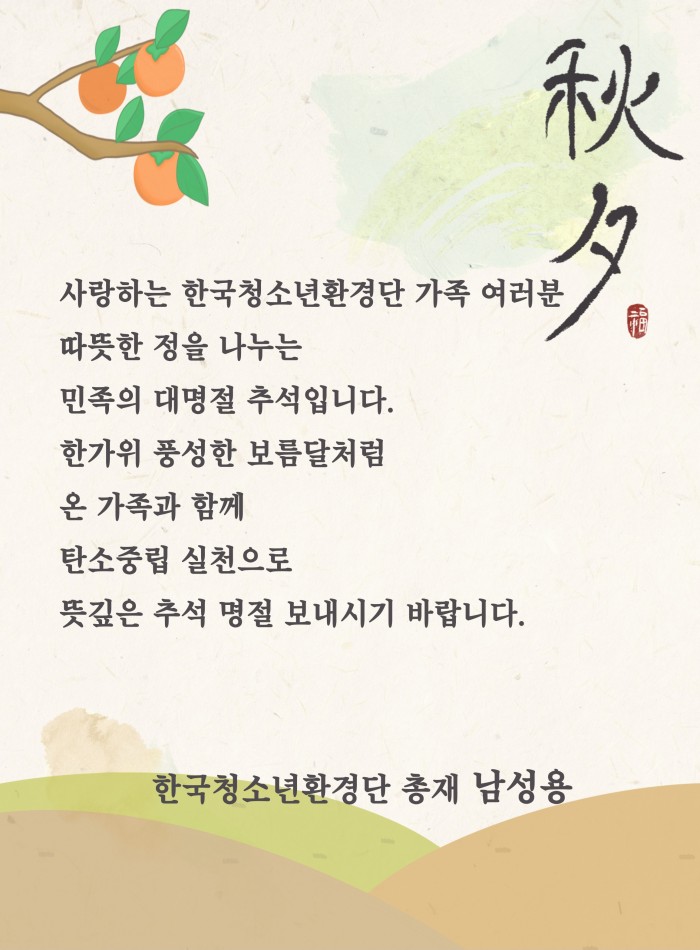 秋夕
福
사랑하는 한국청소년환경단 가족 여러분
따뜻한 정을 나누는
민족의 대명절 추석입니다.
한가위 풍성한 보름달처럼
온 가족과 함께
탄소중립 실천으로
뜻깊은 추석 명절 보내시기 바랍니다.
한국청소년환경단 총재 남성용